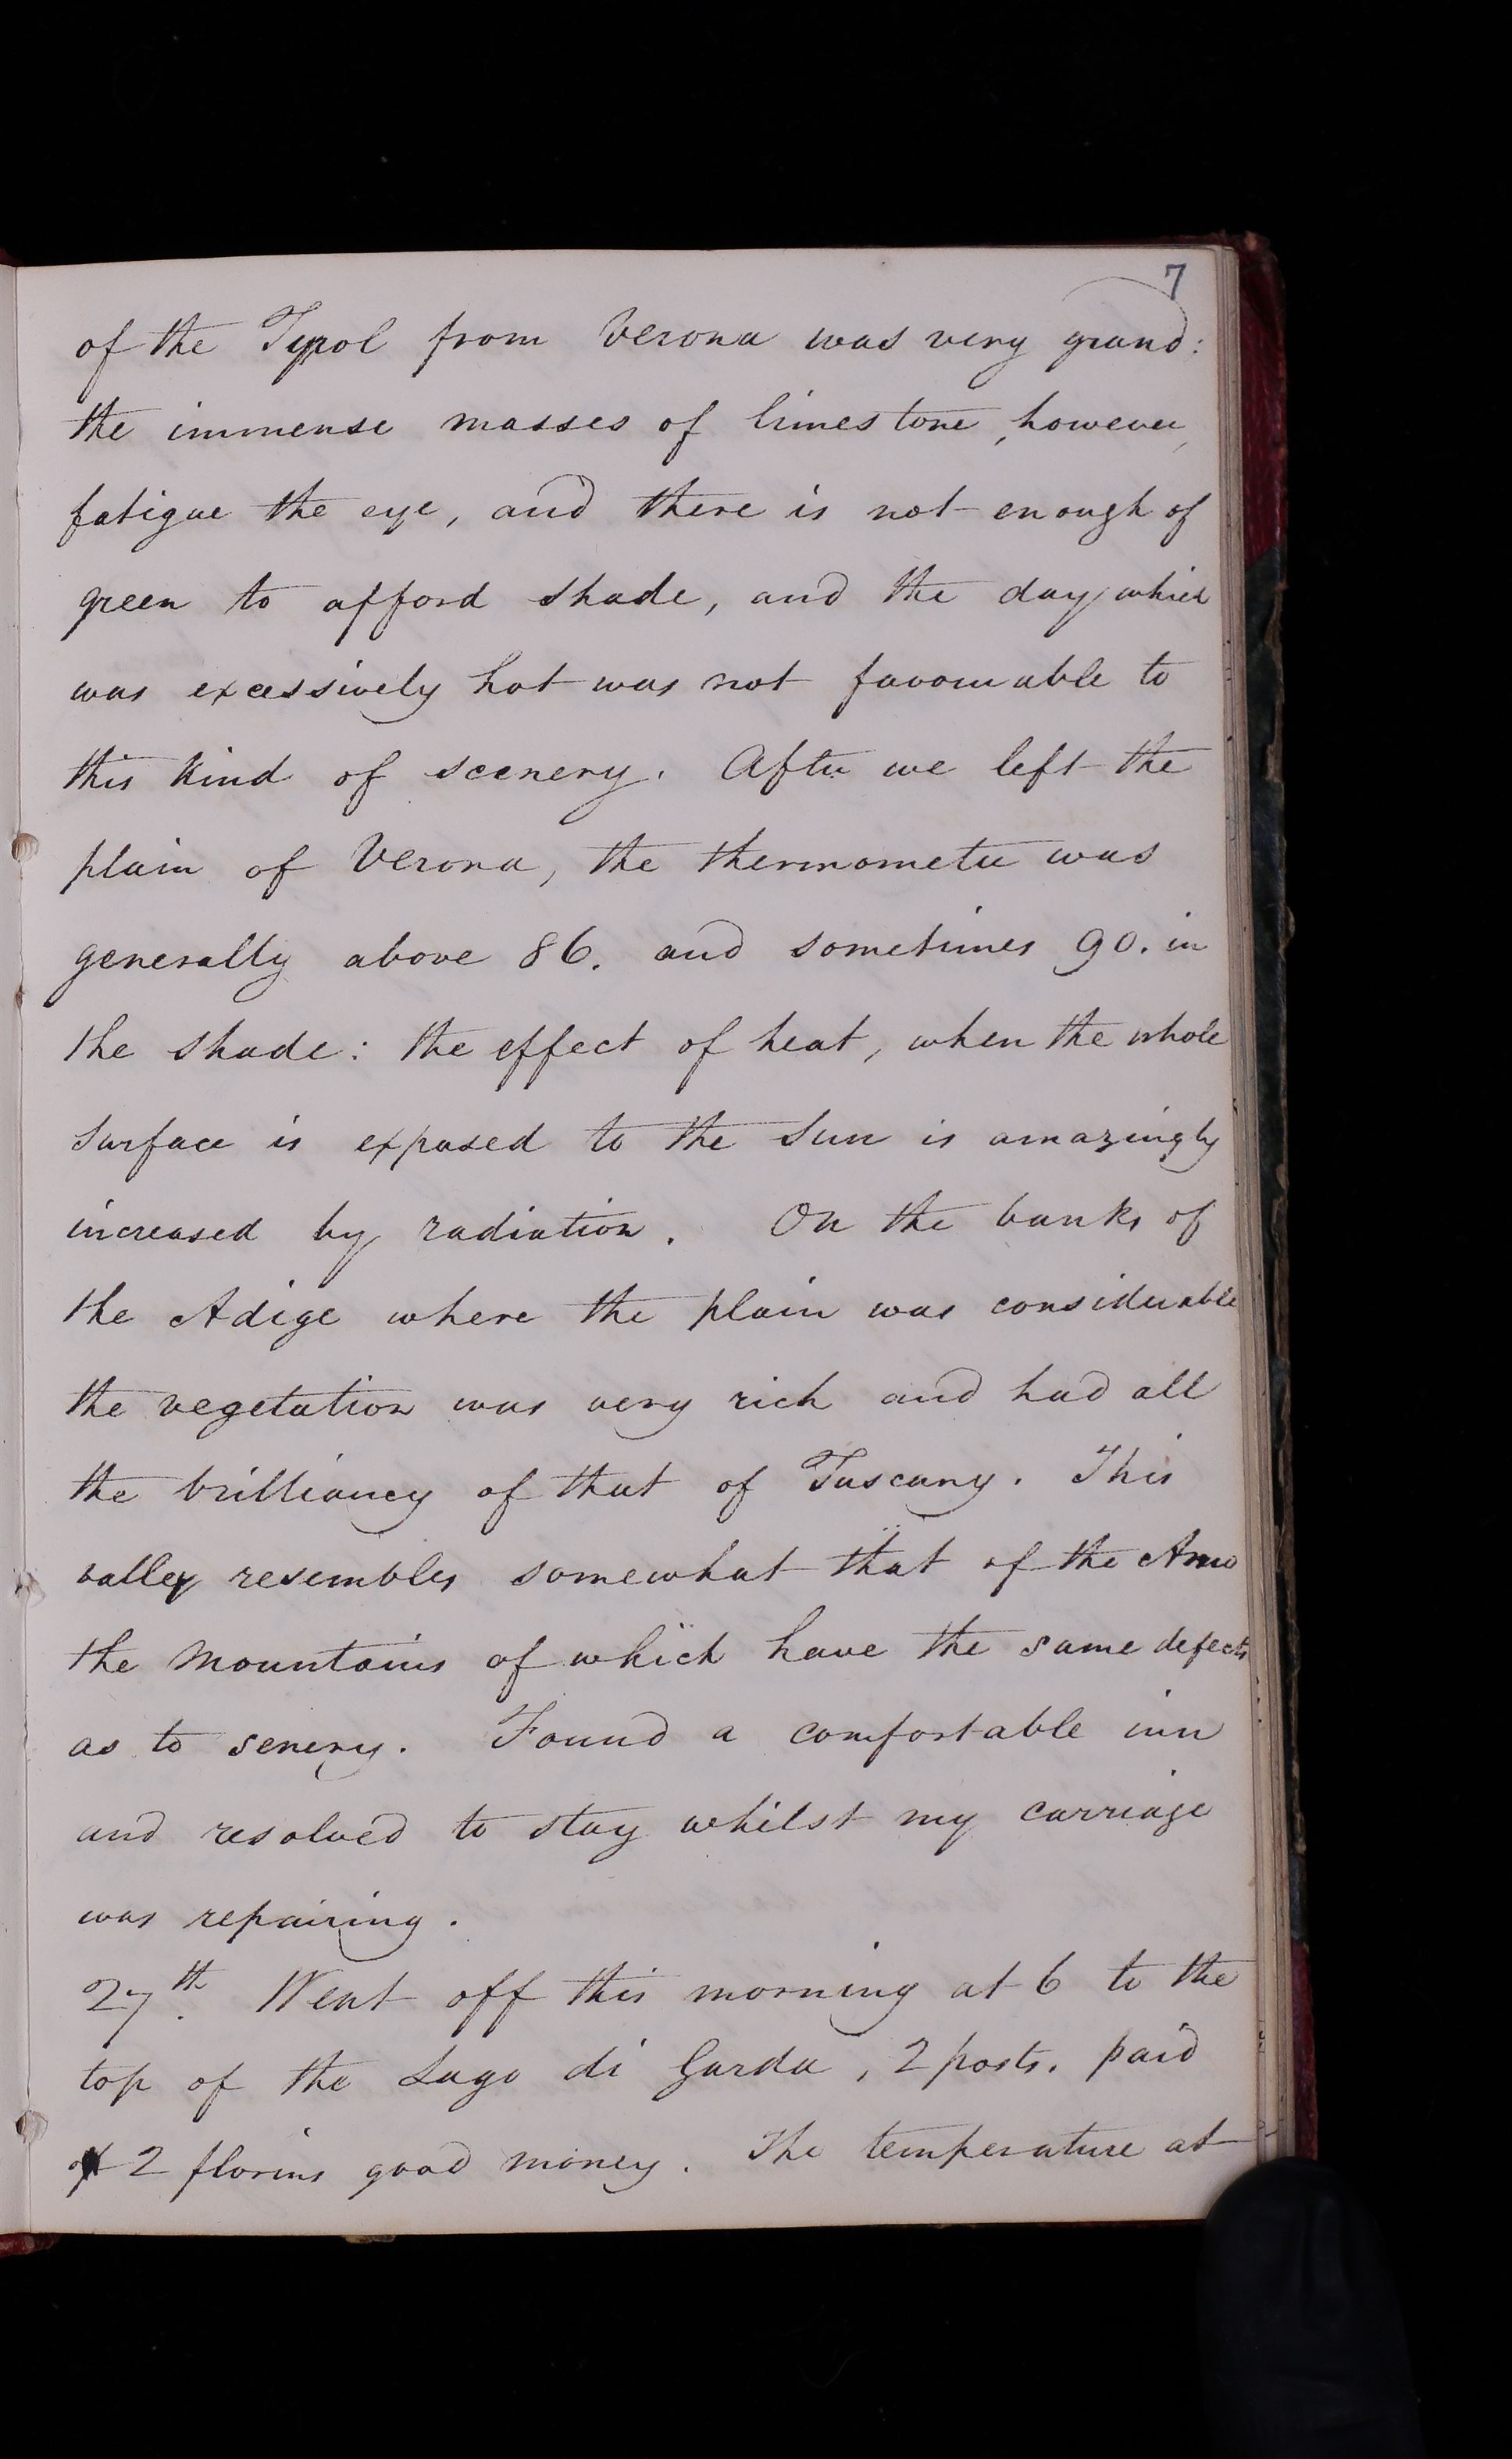 7
of the Tyrol from Verona was very grand:
the immense masses of limestone, however,
fatigue the eye, and there is not enough of
green to afford shade, and the day which
was excessively hot was not favourable to
this kind of scenery. After we left the
plain of Verona, the thermometer was
generally above 86. and sometimes 90. in
the shade: the effect of heat, when the whole
surface is exposed to the Sun is amazingly
increased by radiation. On the banks of
the Adige where the plain was considerable
the vegetation was very rich and had all
the brilliancy of that of Tuscany. This
valley resembles somewhat that of the Arno
the mountains of which have the same defects
as to senery. Found a comfortable inn
and resolved to stay whilst my carriage
was repairing.
27th. Went off this morning at 6 to the
top of the Lago di Garda, 2 posts. paid
2 florins good money. The temperature at